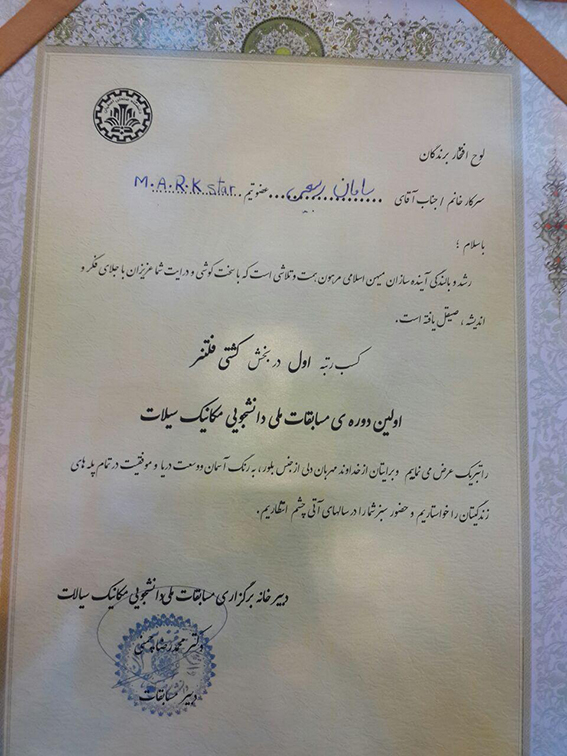 لوح افتخار برندگان
سرکار خانم / جناب آقای سامان ربیعی عضو تیم M.A.R.K star
با سلام ؛
رشد و بالندگی آینده سازان میهن اسلامی مرهون همت و تلاشی است که با سخت کوشی و درایت شما عزیزان با جلای فکر و
اندیشه ، صیقل یافته است.
کسب رتبه اول در بخش کشتی فلتنر
اولین دوره ی مسابقات ملی دانشجویی مکانیک سیلات
را تبریک عرض می نماییم و برایتان از خداوند مهربان دلی از جنس بلور ، به رنگ آسمان و وسعت دریا و موفقیت در تمام پله های
زندگیتان را خواستاریم و حضور سبز شما را در سالهای آتی چشم انتظاریم.
دبیرخانه برگزاری مسابقات ملی دانشجویی مکانیک سیالات
دکتر محمدرضا
دبیر مسابقات